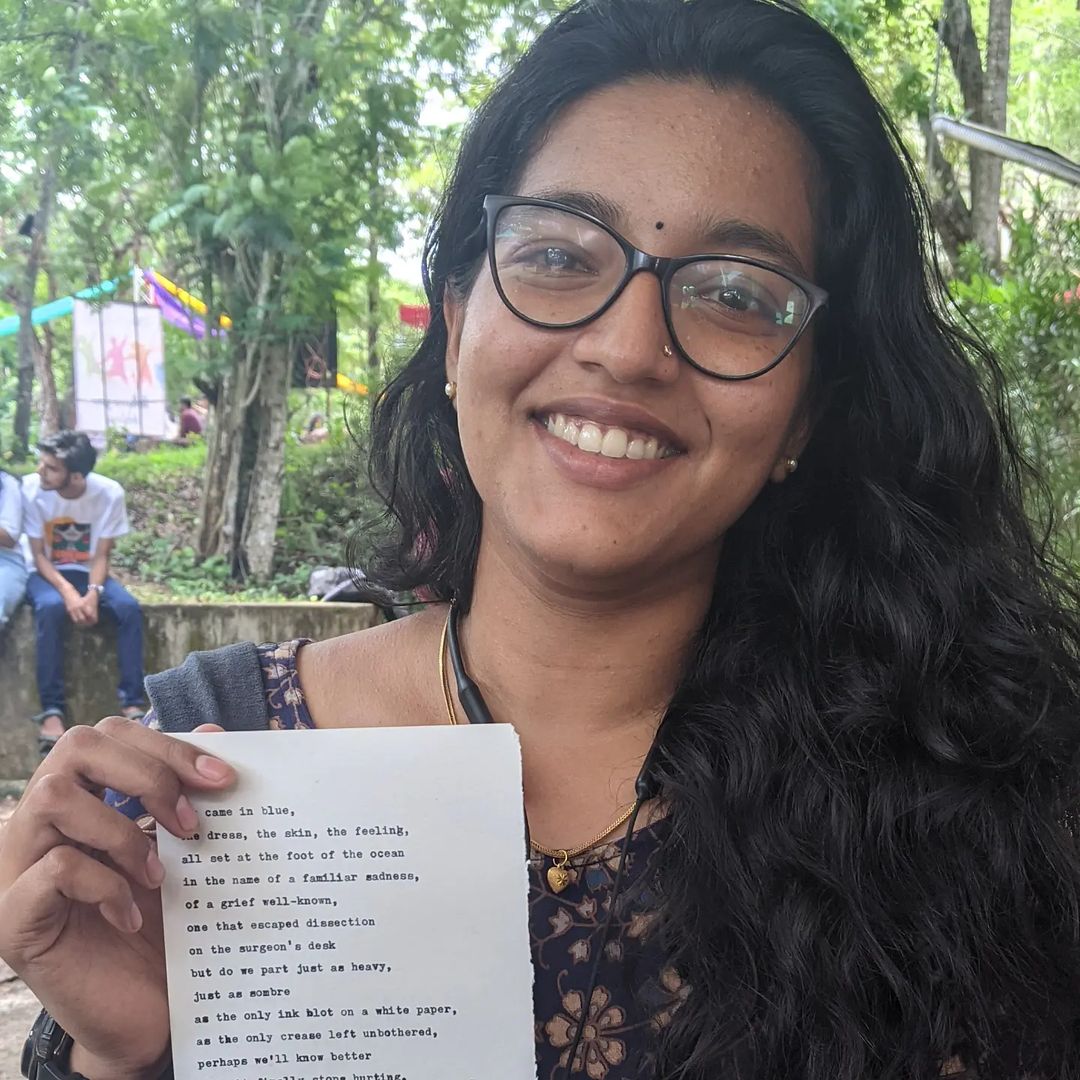 came in blue,
dress, the skin, the feeling,
all set at the foot of the ocean
in the name of a familiar sadness,
of a grief well-known,
one that escaped dissection
on the surgeon's desk
but do we part just as heavy,
just as sombre
as the only ink blot on a white paper,
as the only crease left unbothered,
perhaps we'll know better
finally stops hurting,